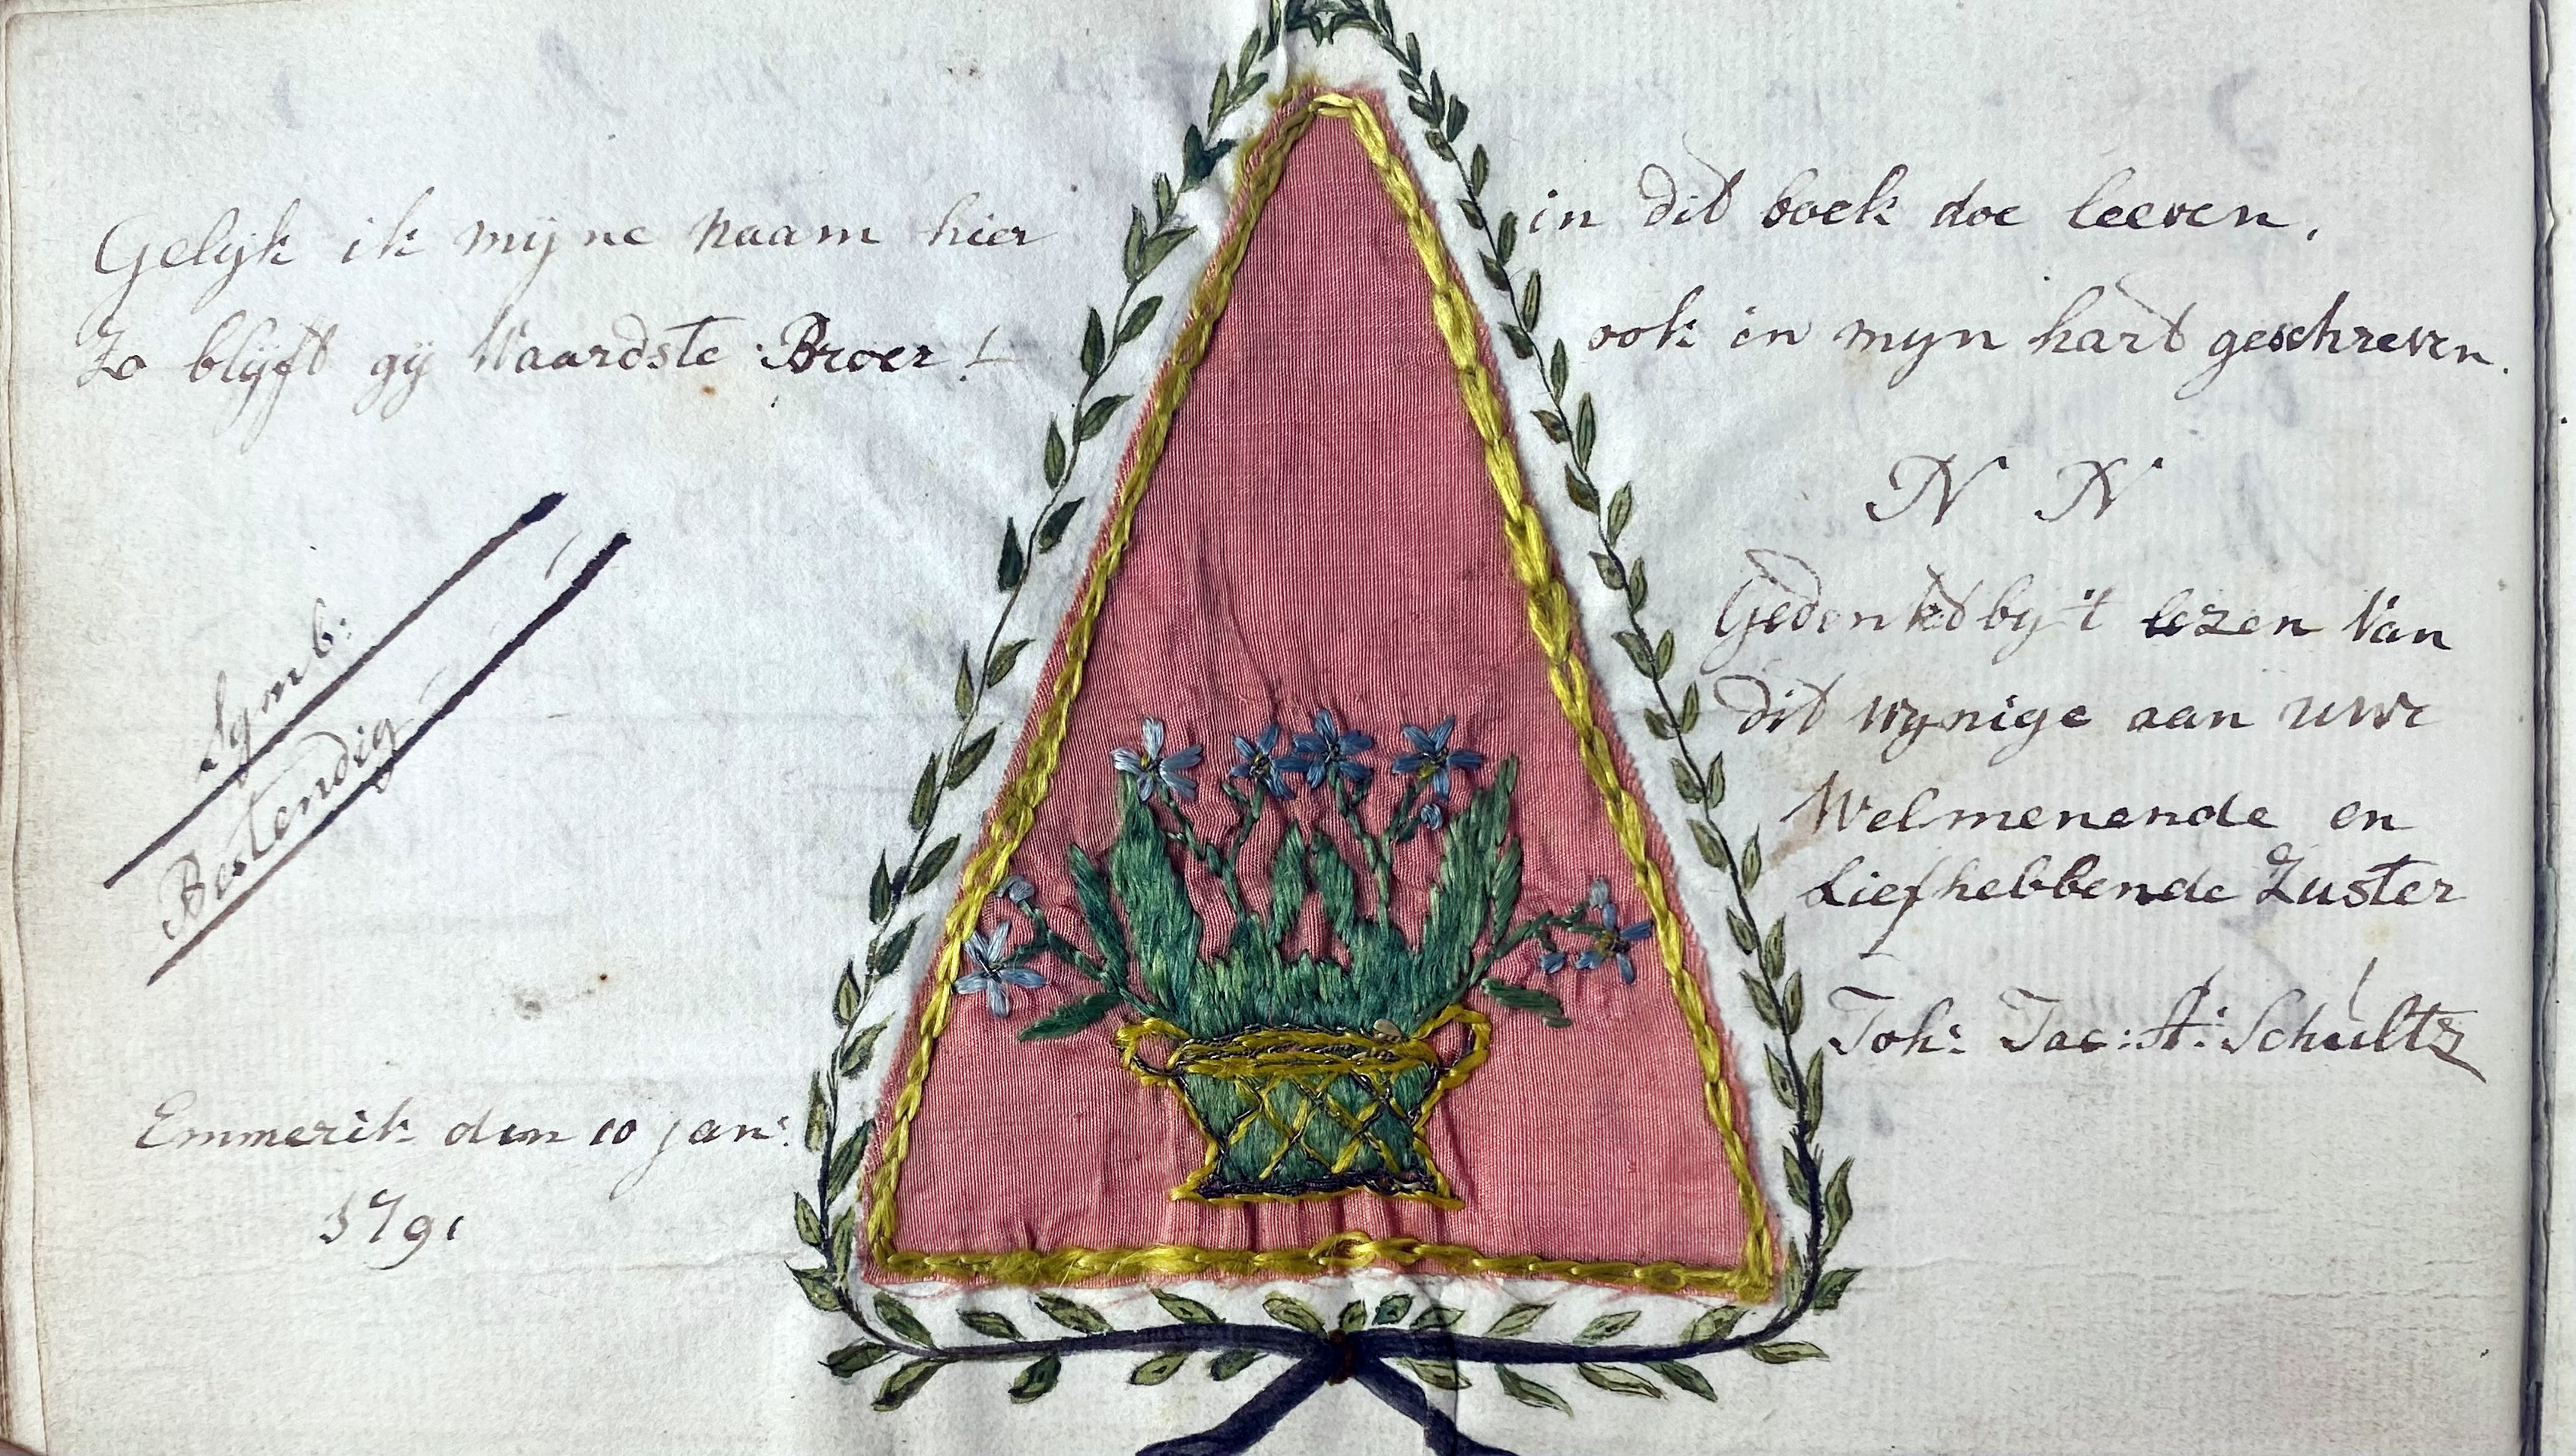 Gelijk ik mijne Naam hier in dit boek doe leeven,
Zo blijft gij Waardste Broer! ook in mijn hart geschreven.
N N
Symb:
Bestendig
Gedenkt bij 't lezen Van
dit wijnige aan uwe
Welmenende en
Liefhebbende Zuster
Joh: Jac: A: Schultz
Emmerik den 10 jan:
1791